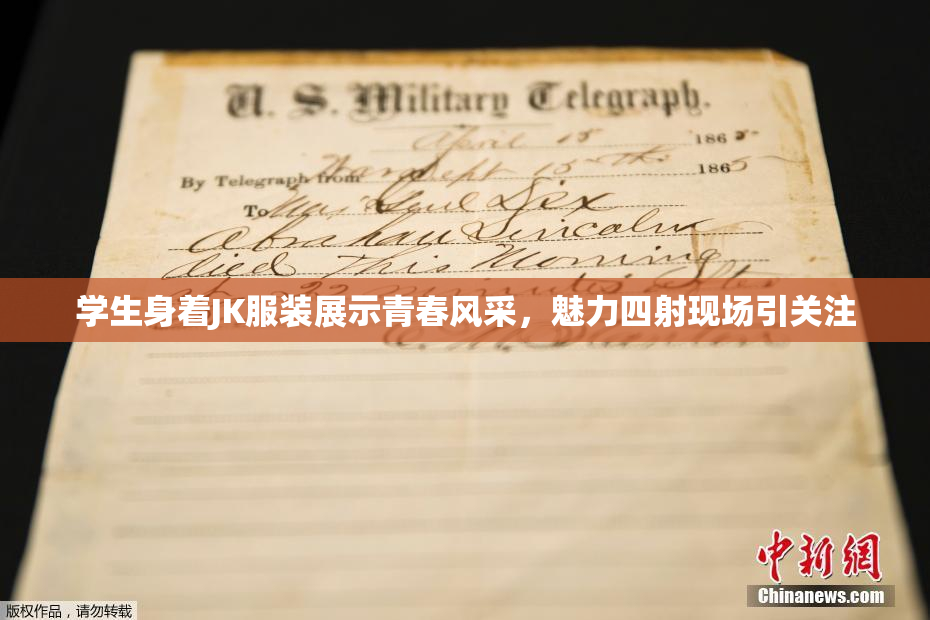 U. S. Military Telegraph.
April 15 1865
By Telegraph from War Dept 15th 1865
To Maj Genl Dix
Abraham Lincoln
died This Morning
at 22 minutes after
学生身着JK服装展示青春风采，魅力四射现场引关注
E. M. Stanton
中新网
Chinanews.com
版权作品，请勿转载